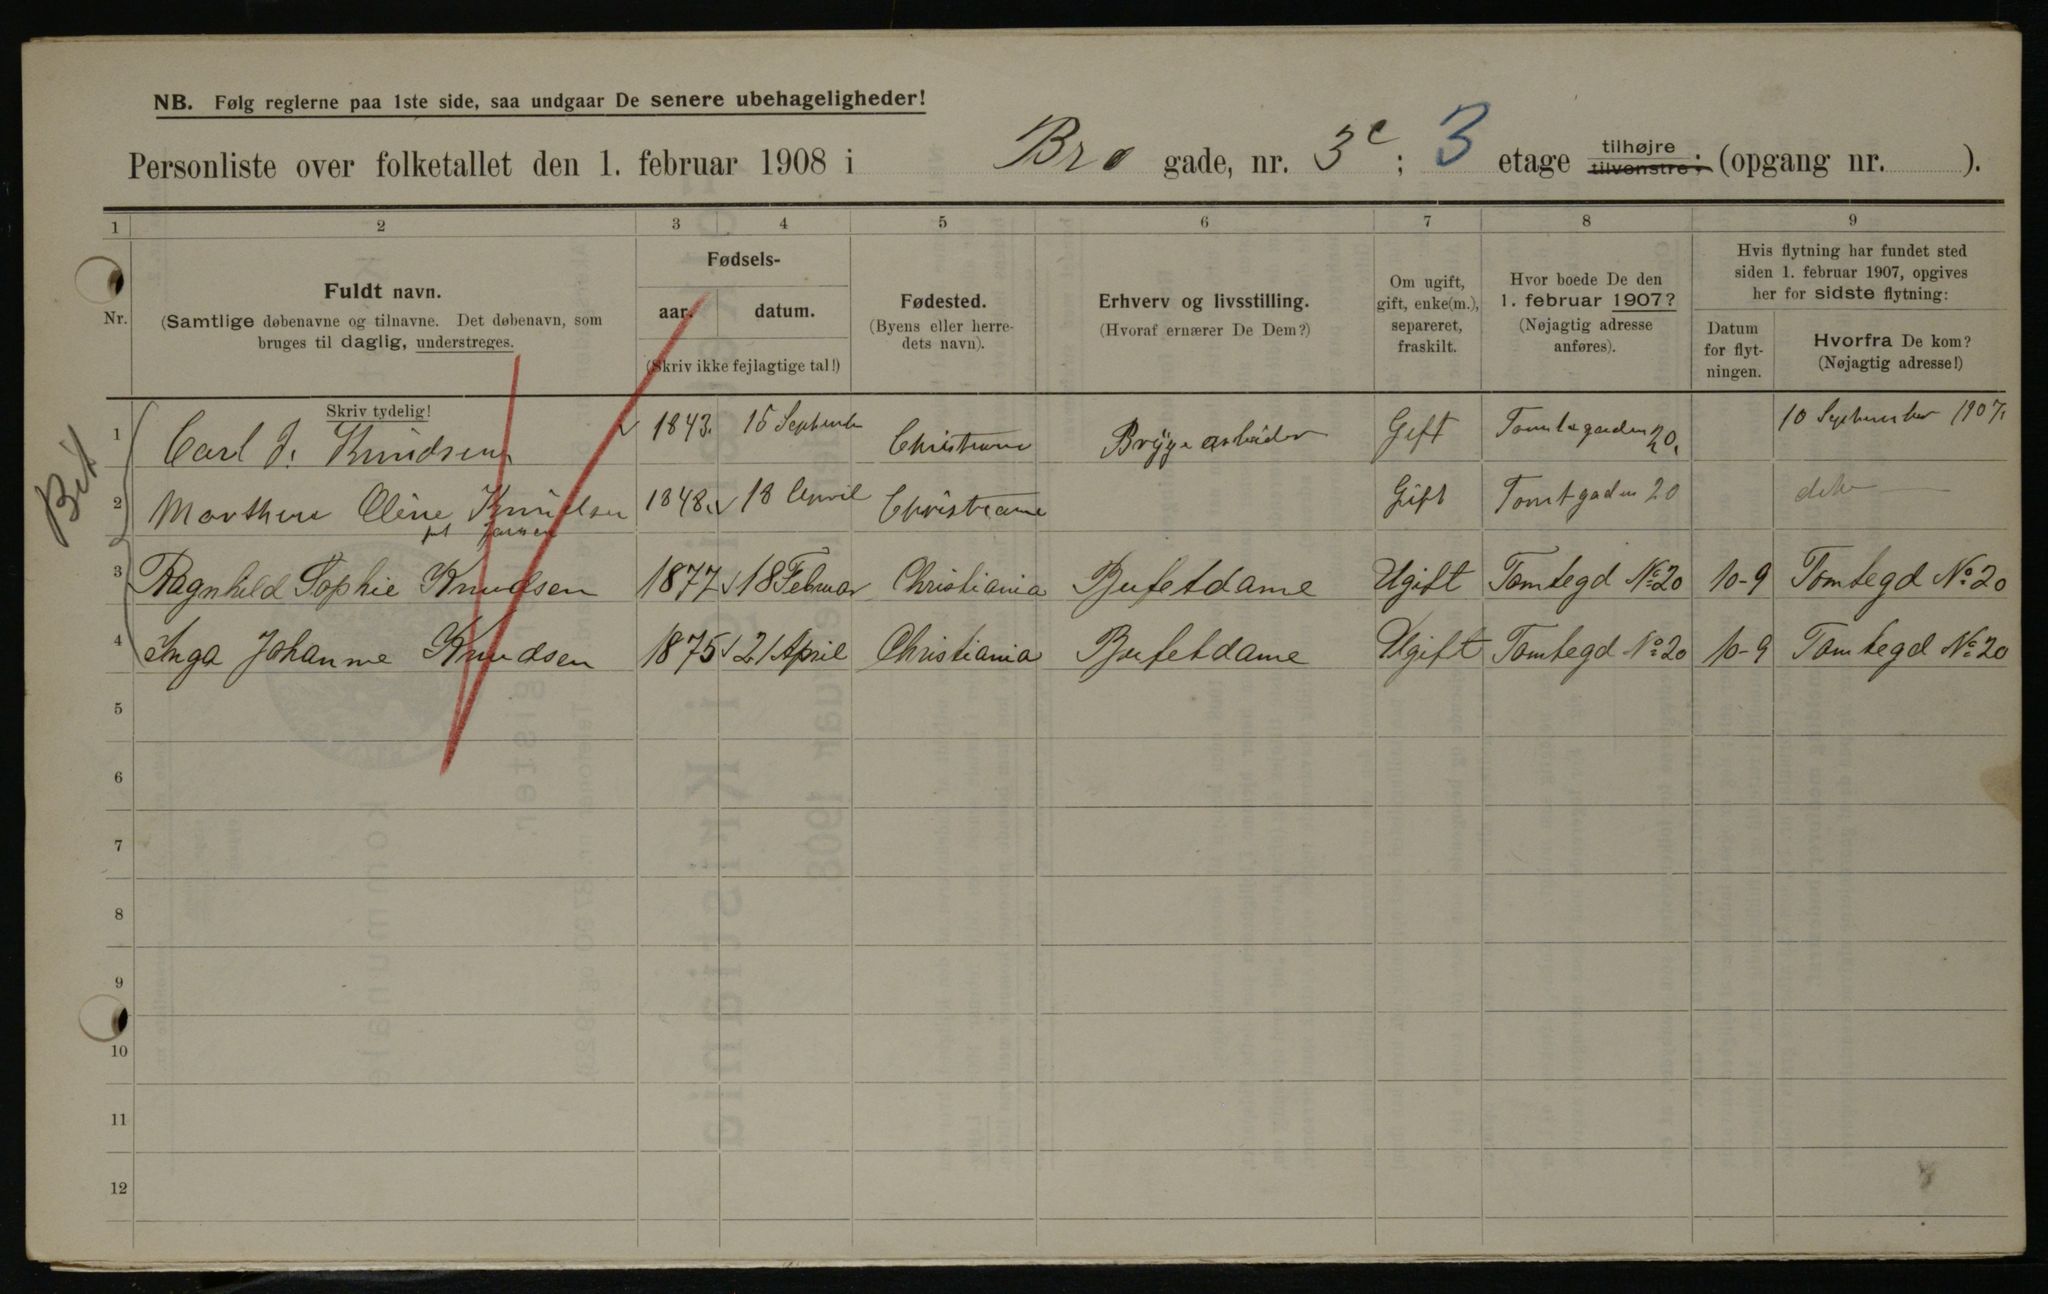 NB. Følg reglerne paa 1ste side, saa undgaar De senere ubehageligheder!
Personliste over folketallet den 1. februar 1908 i Bro gade, nr. 3c; 3 etage tilhøjre tilvenstre; (opgang nr. ).
1 2 3 4 5 6 7 8 9
Nr.
Fuldt navn.
(Samtlige døbenavne og tilnavne. Det døbenavn, som
bruges til daglig, understreges.
Skriv tydelig!
Fødsels-
aar. datum.
(Skriv ikke fejlagtige tal!)
Fødested.
(Byens eller herre-
dets navn).
Erhverv og livsstilling.
(Hvoraf ernærer De Dem?)
Om ugift,
gift, enke(m.),
separeret,
fraskilt.
Hvor boede De den
1. februar 1907?
(Nøjagtig adresse
anføres).
Hvis flytning har fundet sted
siden 1. februar 1907, opgives
her for sidste flytning:
Datum
for flyt-
ningen.
Hvorfra De kom?
(Nøjagtig adresse!)
1 Carl J. Knudsen 1843. 15 September Christiania Brygge arbeider Gift Tomtegaden 20. 10 September 1907.
2 Marthine Oline Knudsen 1848. 18 April Christiania Gift Tomtgaden 20
3 Ragnhild Sophie Knudsen 1877 18 Februar Christiania Bufetdame Ugift Tomtegd No 20 10-9 Tomtegd No 20
4 Inga Johanne Knudsen 1875 21 April Christiania Bufetdame Ugift Tomtegd No 20 10-9 Tomtegd No 20
5
6
7
8
9
10
11
12